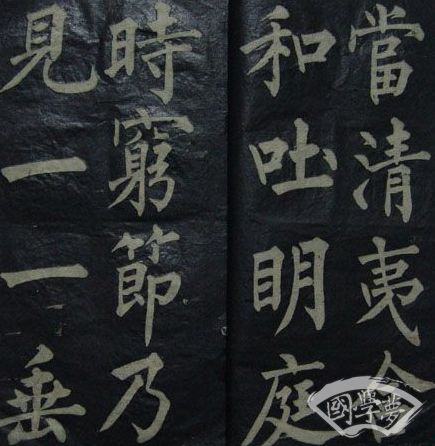 當清夷含
和吐明庭
時窮節乃
見一一垂
國學夢